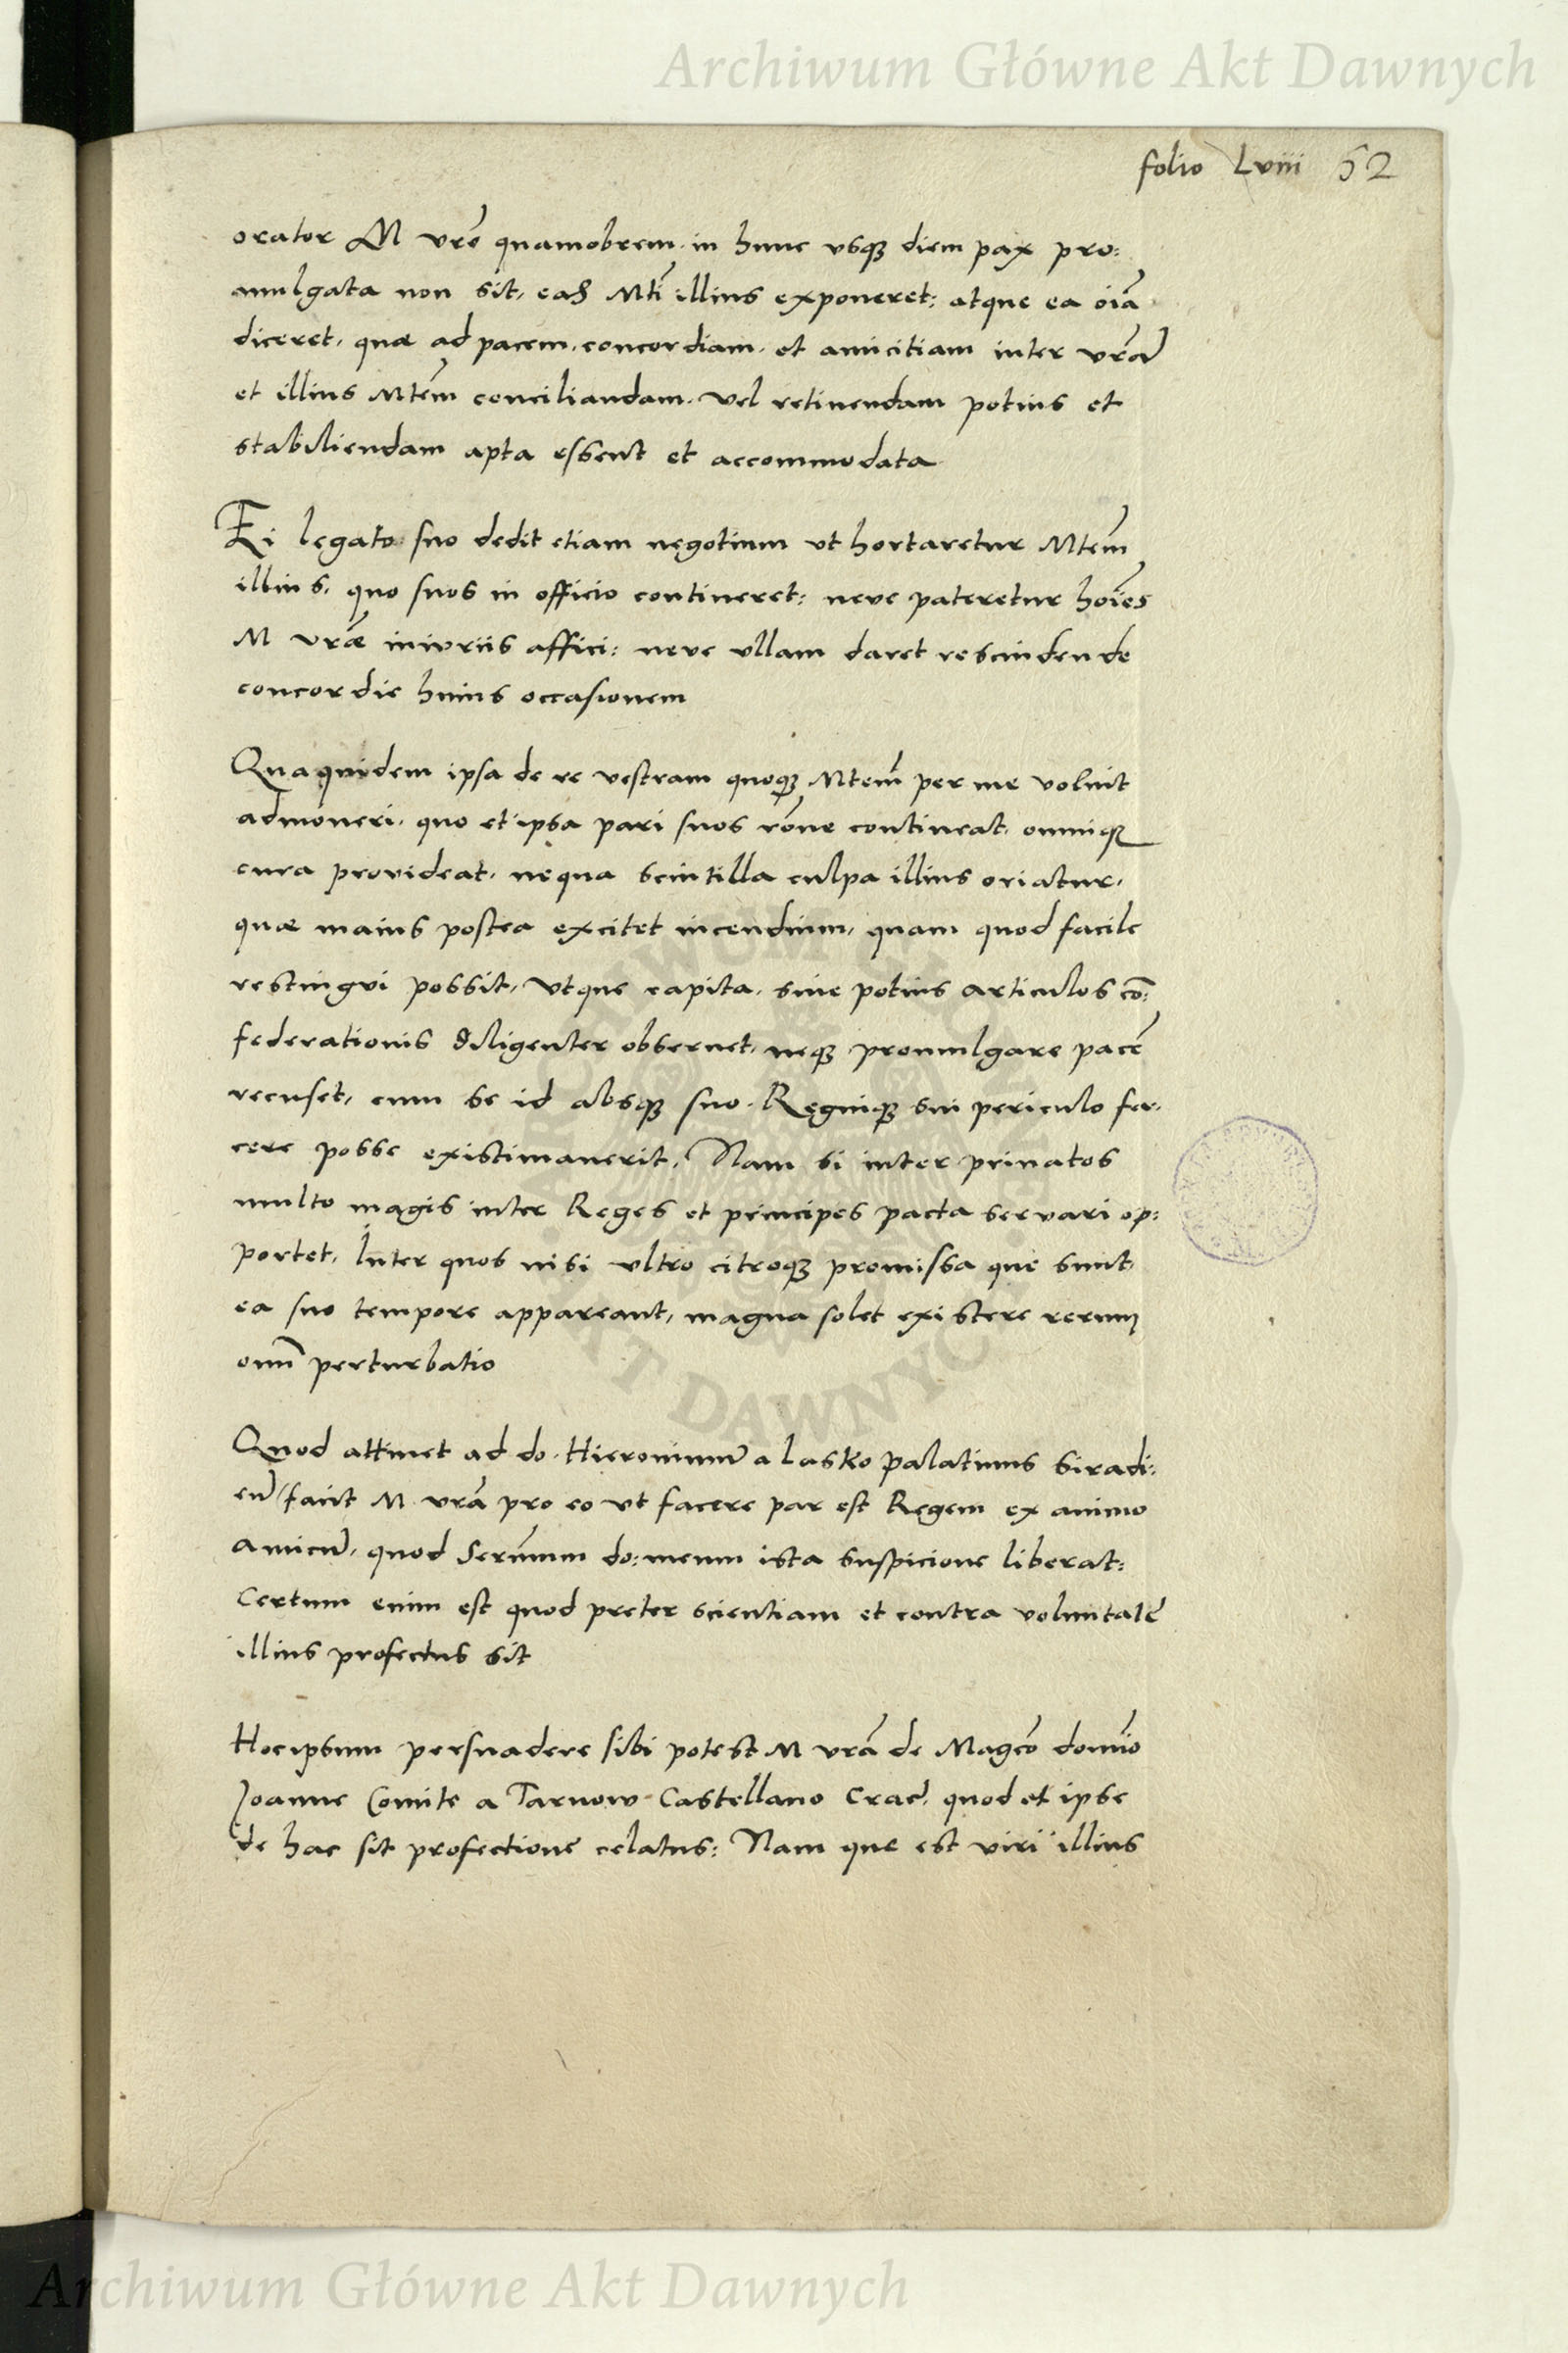 Archiwum Główne Akt Dawnych
folio Lviii 62
orator M vrē quamobrem in hunc vsqꝫ diem pax pro:
mulgata non sit, eaꝫ Mti illius exponeret: atque ea oīa
diceret, quæ ad pacem, concordiam, et amicitiam inter vrā
et illius Mtem conciliandam, vel retinendam potius et
stabiliendam apta essent et accommodata
Ei legato suo dedit etiam negotium vt hortaretur Mtem
illius, quo suos in officio contineret: neve pateretur hoīes
M vræ iniuriis affici: neve vllam daret rescindende
concordie huius occasionem
Qua quidem ipsa de re vestram quoqꝫ Mtem per me voluit
admoneri, quo et ipsa pari suos rōne contineat, omniqꝫ
cura provideat, ne qua scintilla culpa illius oriatur,
quæ maius postea excitet incendium, quam quod facile
restingui possit, vtque capita, siue potius articulos cō:
federationis diligenter obseruet, neqꝫ promulgare pacē
recuset, cum se id absqꝫ suo Regniqꝫ sui periculo fa-
cere posse existimauerit, Nam si inter priuatos
multo magis inter Reges et principes pacta servari op:
portet, Inter quos nisi vltro citroqꝫ promissa que sunt,
ea suo tempore appareant, magna solet existere rerum
omī perturbatio
Quod attinet ad do. Hieronimū a Lasko palatinus Siradi:
eñ, facit M. vrā pro eo vt facere par est Regem ex animo
amicū, quod Sermum do: meum ista suspicione liberat:
Certum enim est quod preter scientiam et contra voluntatē
illius profectus sit
Hoc ipsum persuadere sibi potest M vrā de Magco domīo
Joanne Comite a Tarnow Castellano Crac. quod et ipse
de hac sit profectione celatus: Nam que est viri illius
ARCHIWUM GŁÓWNE AKT DAWNYCH
Archiwum Główne Akt Dawnych